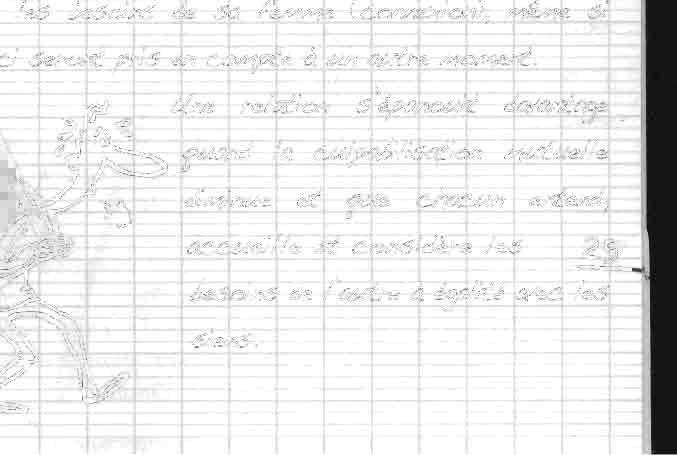 les besoins de sa femme (connexion), même si
ci seront pris en compte à un autre moment.
Une relation s'épanouit davantage
quand la culpabilisation mutuelle
diminue et que chacun entend,
accueille et considère les
besoins de l'autre à égalité avec les
siens.
29